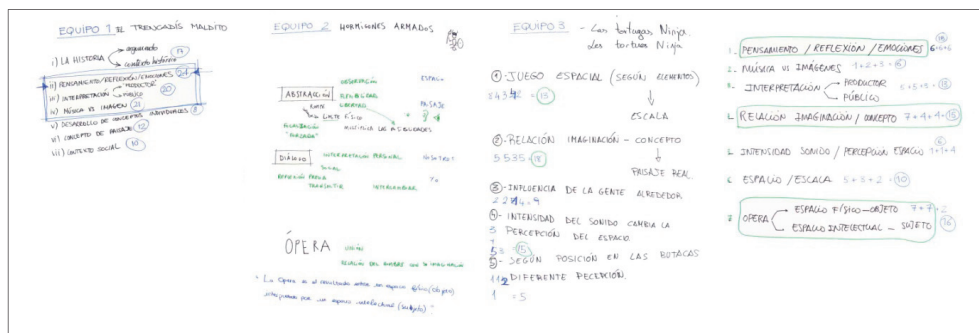 EQUIPO 1 EL TRENCADÍS MALDITO
i) LA HISTORIA
argumento
contexto histórico
17
ii) PENSAMIENTO/REFLEXIÓN/EMOCIONES 24
iii) INTERPRETACIÓN
PRODUCTOR
PÚBLICO
20
iv) MÚSICA VS IMAGEN 21
v) DESARROLLO DE CONCEPTOS INDIVIDUALES 8
vi) CONCEPTO DE PAISAJE 12
vii) CONTEXTO SOCIAL 10
EQUIPO 2 HORMIGONES ARMADOS
OBSERVACIÓN
ESPACIO
ABSTRACCIÓN
LIBERTAD
PAISAJE
LÍMITE FÍSICO
MULTIPLICA LAS POSIBILIDADES
DIÁLOGO
INTERPRETACIÓN PERSONAL
NOSOTROS
YO
TRANSMITIR
INTERCAMBIAR
ÓPERA
VISIÓN
RELACIÓN DEL HOMBRE CON SU IMAGINACIÓN
"La Ópera es el resultado entre un espacio físico (Objeto)
interpretado por un espacio intelectual (sujeto)"
EQUIPO 3 - Las tortugas Ninja.
Les tortues Ninja
1-JUEGO ESPACIAL (SEGÚN ELEMENTOS)
ESCALA
2-RELACIÓN IMAGINACIÓN - CONCEPTO
5535=18
PAISAJE REAL
3-INFLUENCIA DE LA GENTE ALREDEDOR
4- INTENSIDAD DEL SONIDO CAMBIA LA
PERCEPCIÓN DEL ESPACIO.
5- SEGÚN POSICIÓN EN LAS BUTACAS
DIFERENTE PECEPCIÓN.
1 =5
1. PENSAMIENTO / REFLEXIÓN / EMOCIONES
2. MÚSICA VS IMÁGENES
3. INTERPRETACIÓN
PRODUCTOR
PÚBLICO
5+5+5=15
RELACIÓN IMAGINACIÓN / CONCEPTO 7+4+4=15
INTENSIDAD SONIDO / PERCEPCIÓN ESPACIO
ESPACIO / ESCALA 5+3+2=10
OPERA
ESPACIO FÍSICO - OBJETO 7+7+2
ESPACIO INTELECTUAL - SUJETO 16